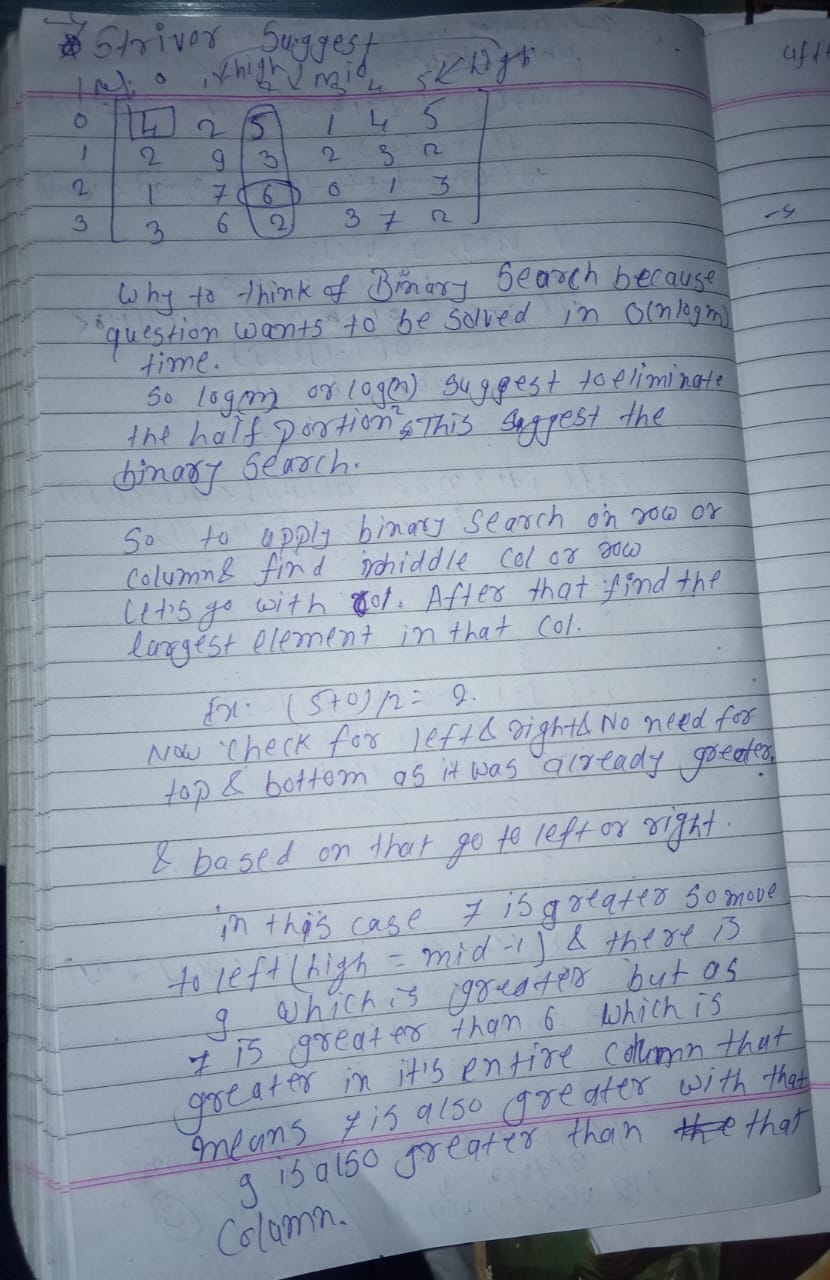 Striver Suggest
0 high mid 4 5 high
0 4 2 5 1 4 5
1 2 9 3 2 3 2
2 1 7 6 0 1 3
3 3 6 2 3 7 2
Why to think of Binary Search because
question wants to be solved in O(nlogm)
time.
So log(m) or log(n) suggest to eliminate
the half portion & This suggest the
binary Search.
So to apply binary Search on row or
column & find middle col or row
let's go with col. After that find the
largest element in that col.
Ex: (5+0)/2 = 2.
Now check for left & right & No need for
top & bottom as it was already greater.
& based on that go to left or right.
in this case 7 is greater so move
to left (high = mid -1) & there is
9 which is greater but as
7 is greater than 6 which is
greater in it's entire column that
means 7 is also greater with that
9 is also greater than the that
Column.